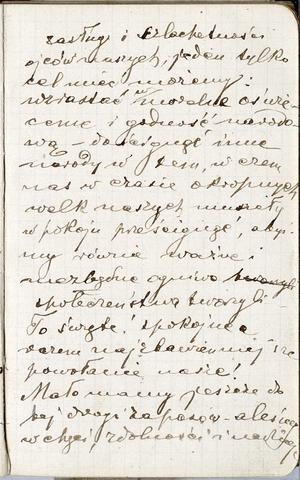 zasług i szlachetności
ojców naszych, jeden tylko
cel mieć możemy:
wzrastać w moralne oświe-
cenie i godność narodo-
wą – doścignąć inne
narody w tem, w czem
nas w czasie okropnych
walk naszych musiały
w pokoju prześcignąć, aby-
my równie ważne i
niezbędne ogniwo
społeczeństwa tworzyli
To święte, spokojne a
zarazem najzbawienniejsze
powołanie nasze!
Mało mamy jeszcze do
tej drogi zapasów – ale
w chęci, zdolności i